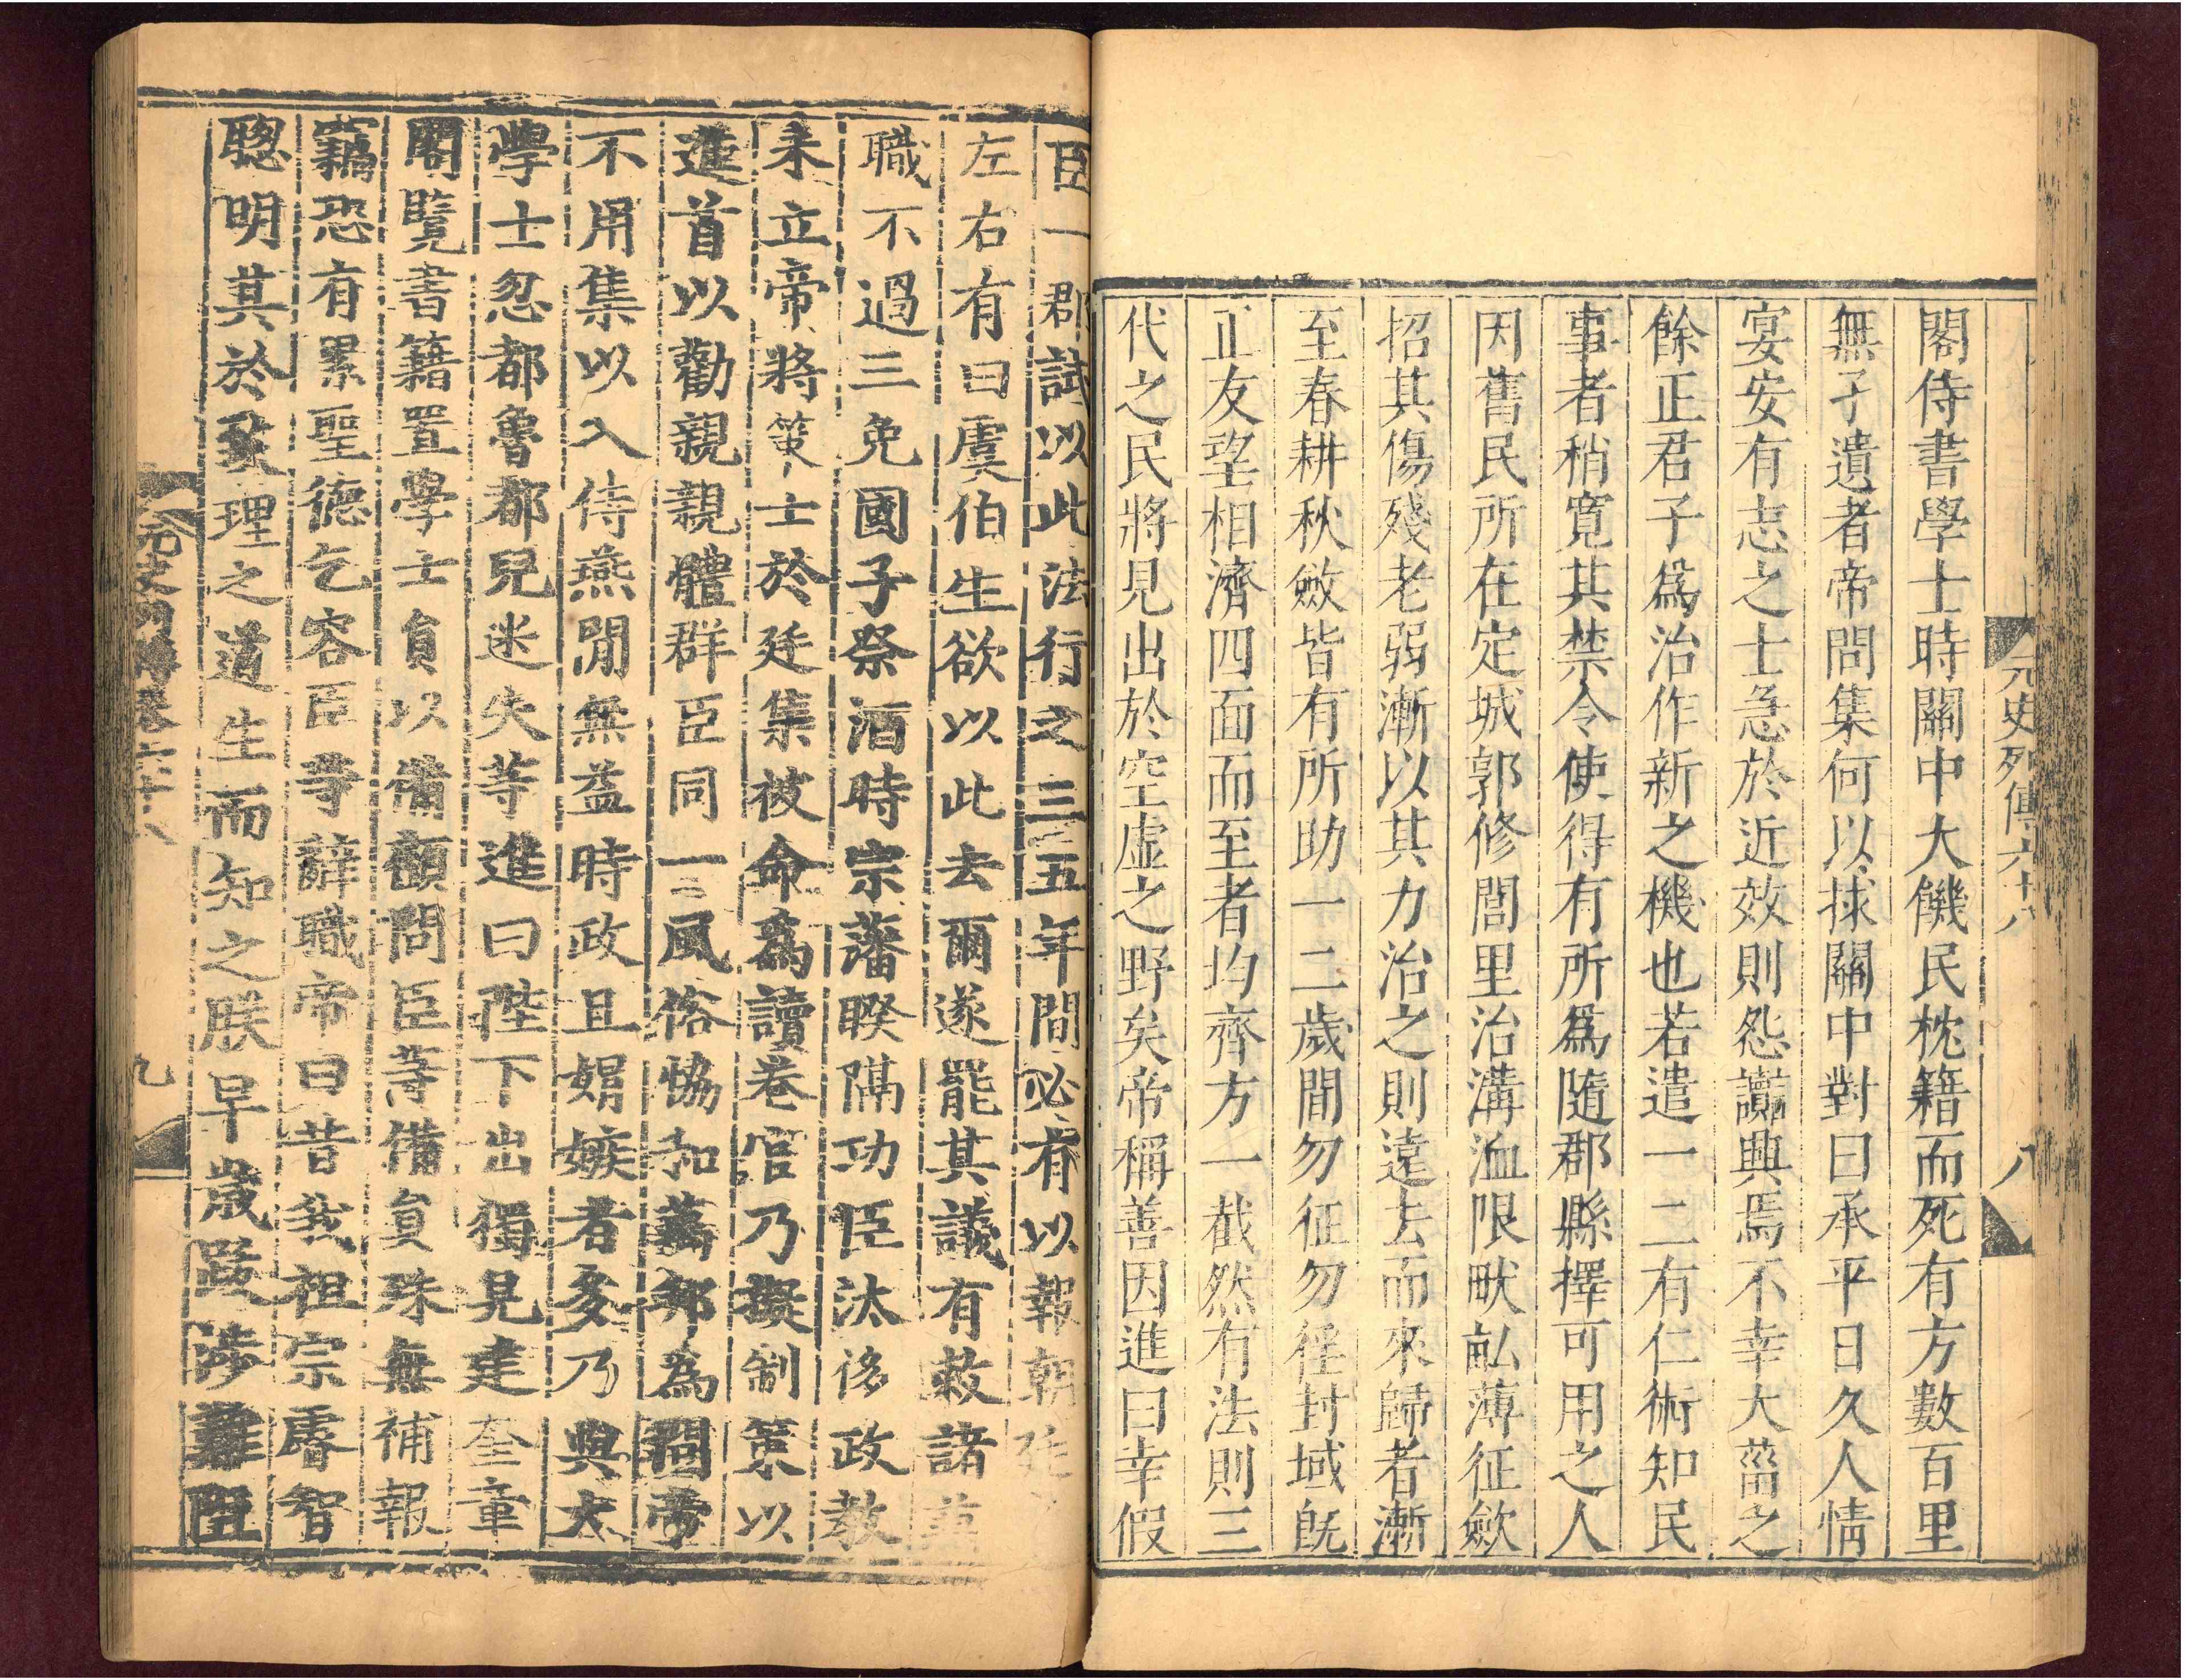 元史列傳六十八 八
閣侍書學士時關中大饑民枕籍而死有方數百里
無孑遺者帝問集何以捄關中對曰承平日久人情
宴安有志之士急於近效則怨讟興焉不幸大菑之
餘正君子爲治作新之機也若遣一二有仁術知民
事者稍寬其禁令使得有所爲隨郡縣擇可用之人
因舊民所在定城郭修閭里治溝洫限畎畝薄征斂
招其傷殘老弱漸以其力治之則遠去而來歸者漸
至春耕秋斂皆有所助一二歲間勿征勿徭封域旣
正友望相濟四面而至者均齊方一截然有法則三
代之民將見出於空虛之野矣帝稱善因進曰幸假
臣一郡試以此法行之三五年間必有以報朝廷
左右有曰虞伯生欲以此去爾遂罷其議有敕諸兼
職不過三免國子祭酒時宗藩睽隔功臣汰侈政教
未立帝將策士於廷集被命爲讀卷官乃擬制策以
進首以勸親親體群臣同一風俗恊和萬邦爲問帝
不用集以入侍燕閒無益時政且媢嫉者多乃與大
學士忽都魯都兒迷失等進曰陛下出獨見建奎章
閣覽書籍置學士員以備顧問臣等備員殊無補報
竊恐有累聖德乞容臣等辭職帝曰昔我祖宗睿智
聰明其於致理之道生而知之朕早歲跋涉難阻
元史列傳卷六十八 九